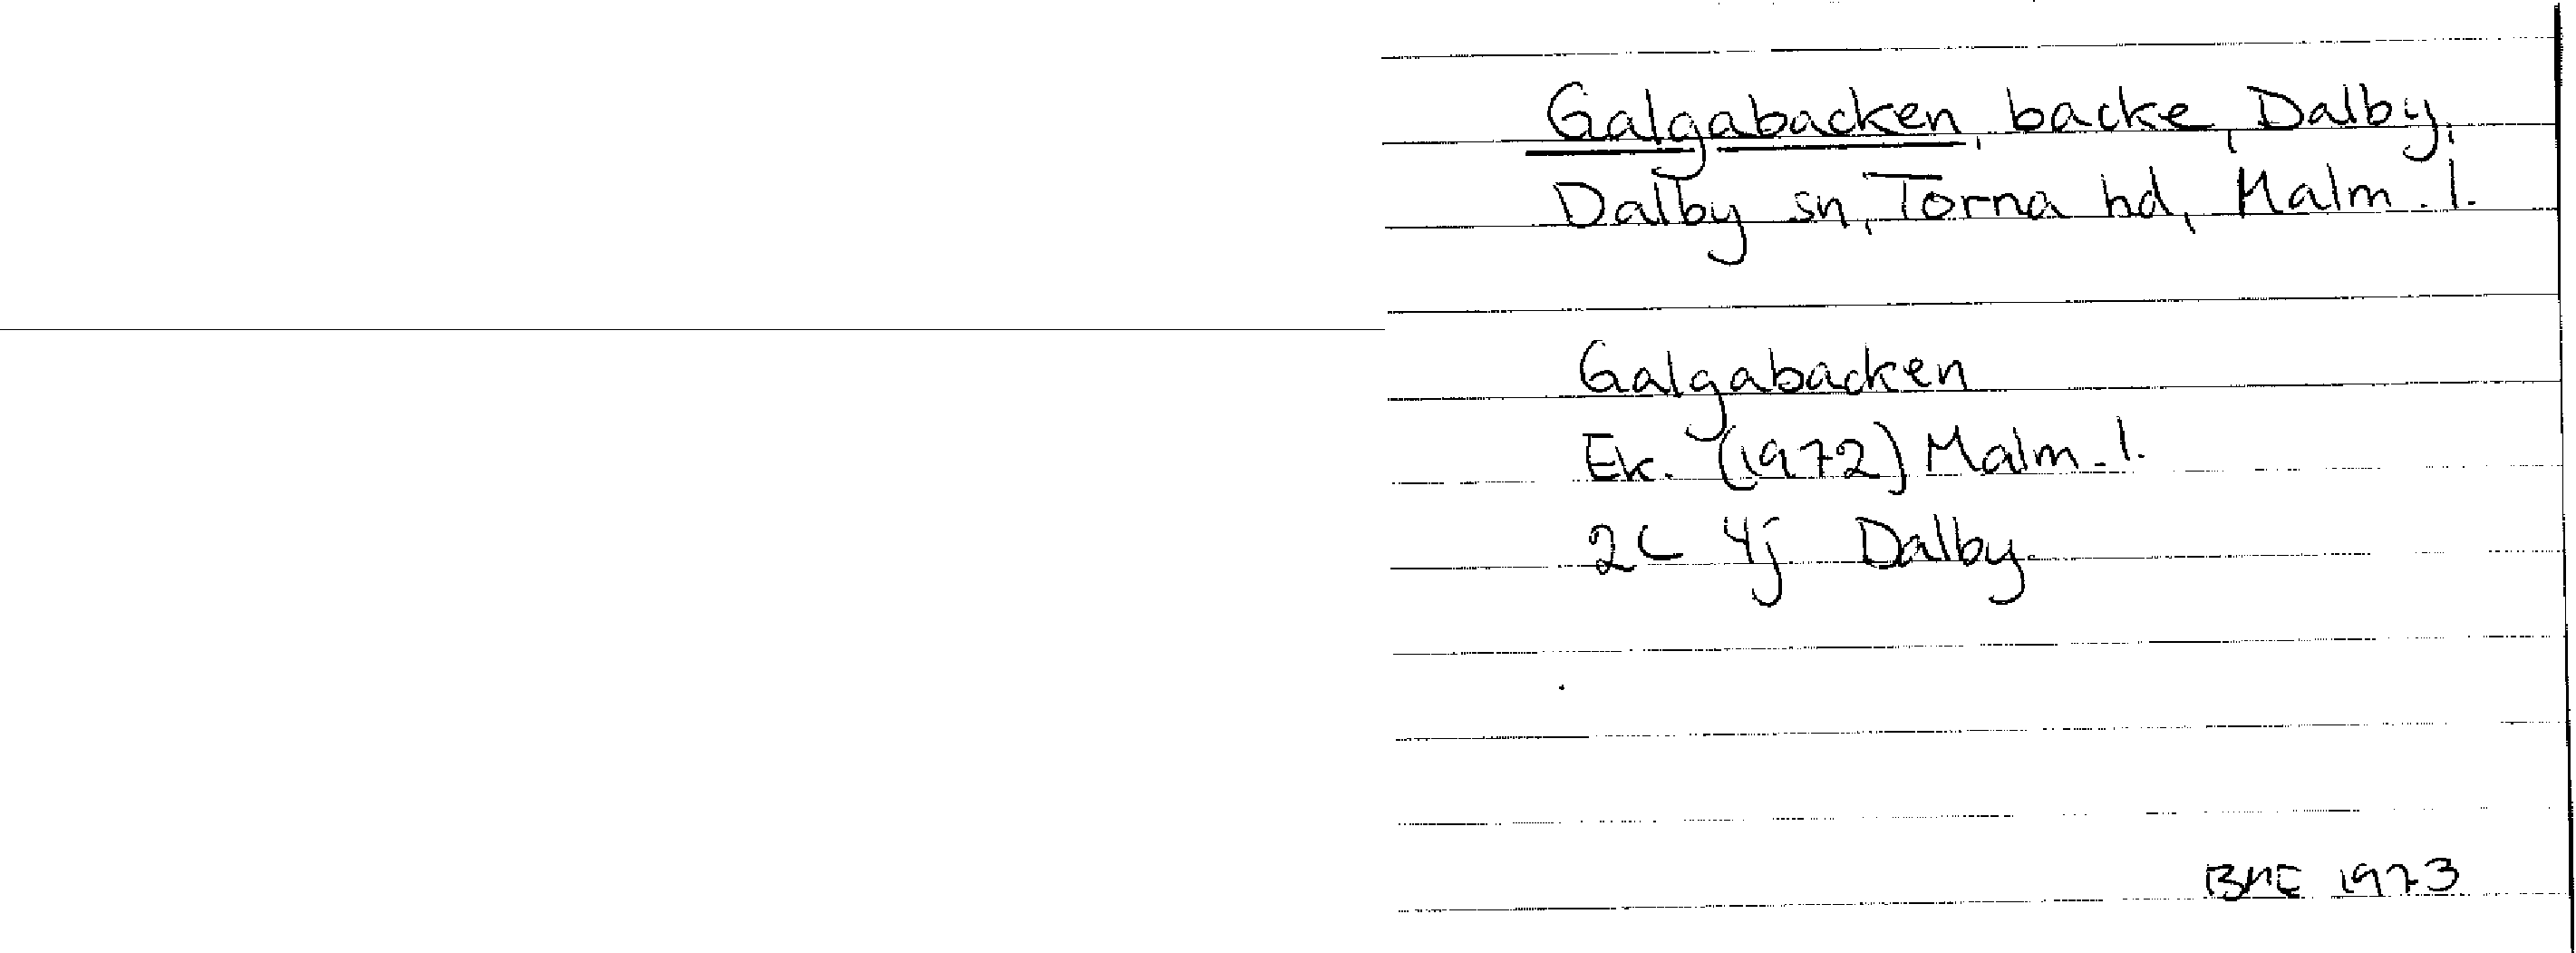 Galgabacken, backe, Dalby,
Dalby sn, Torna hd, Malm. l.
Galgabacken
Ek. (1972) Malm. l.
2C 4j Dalby
BME 1973